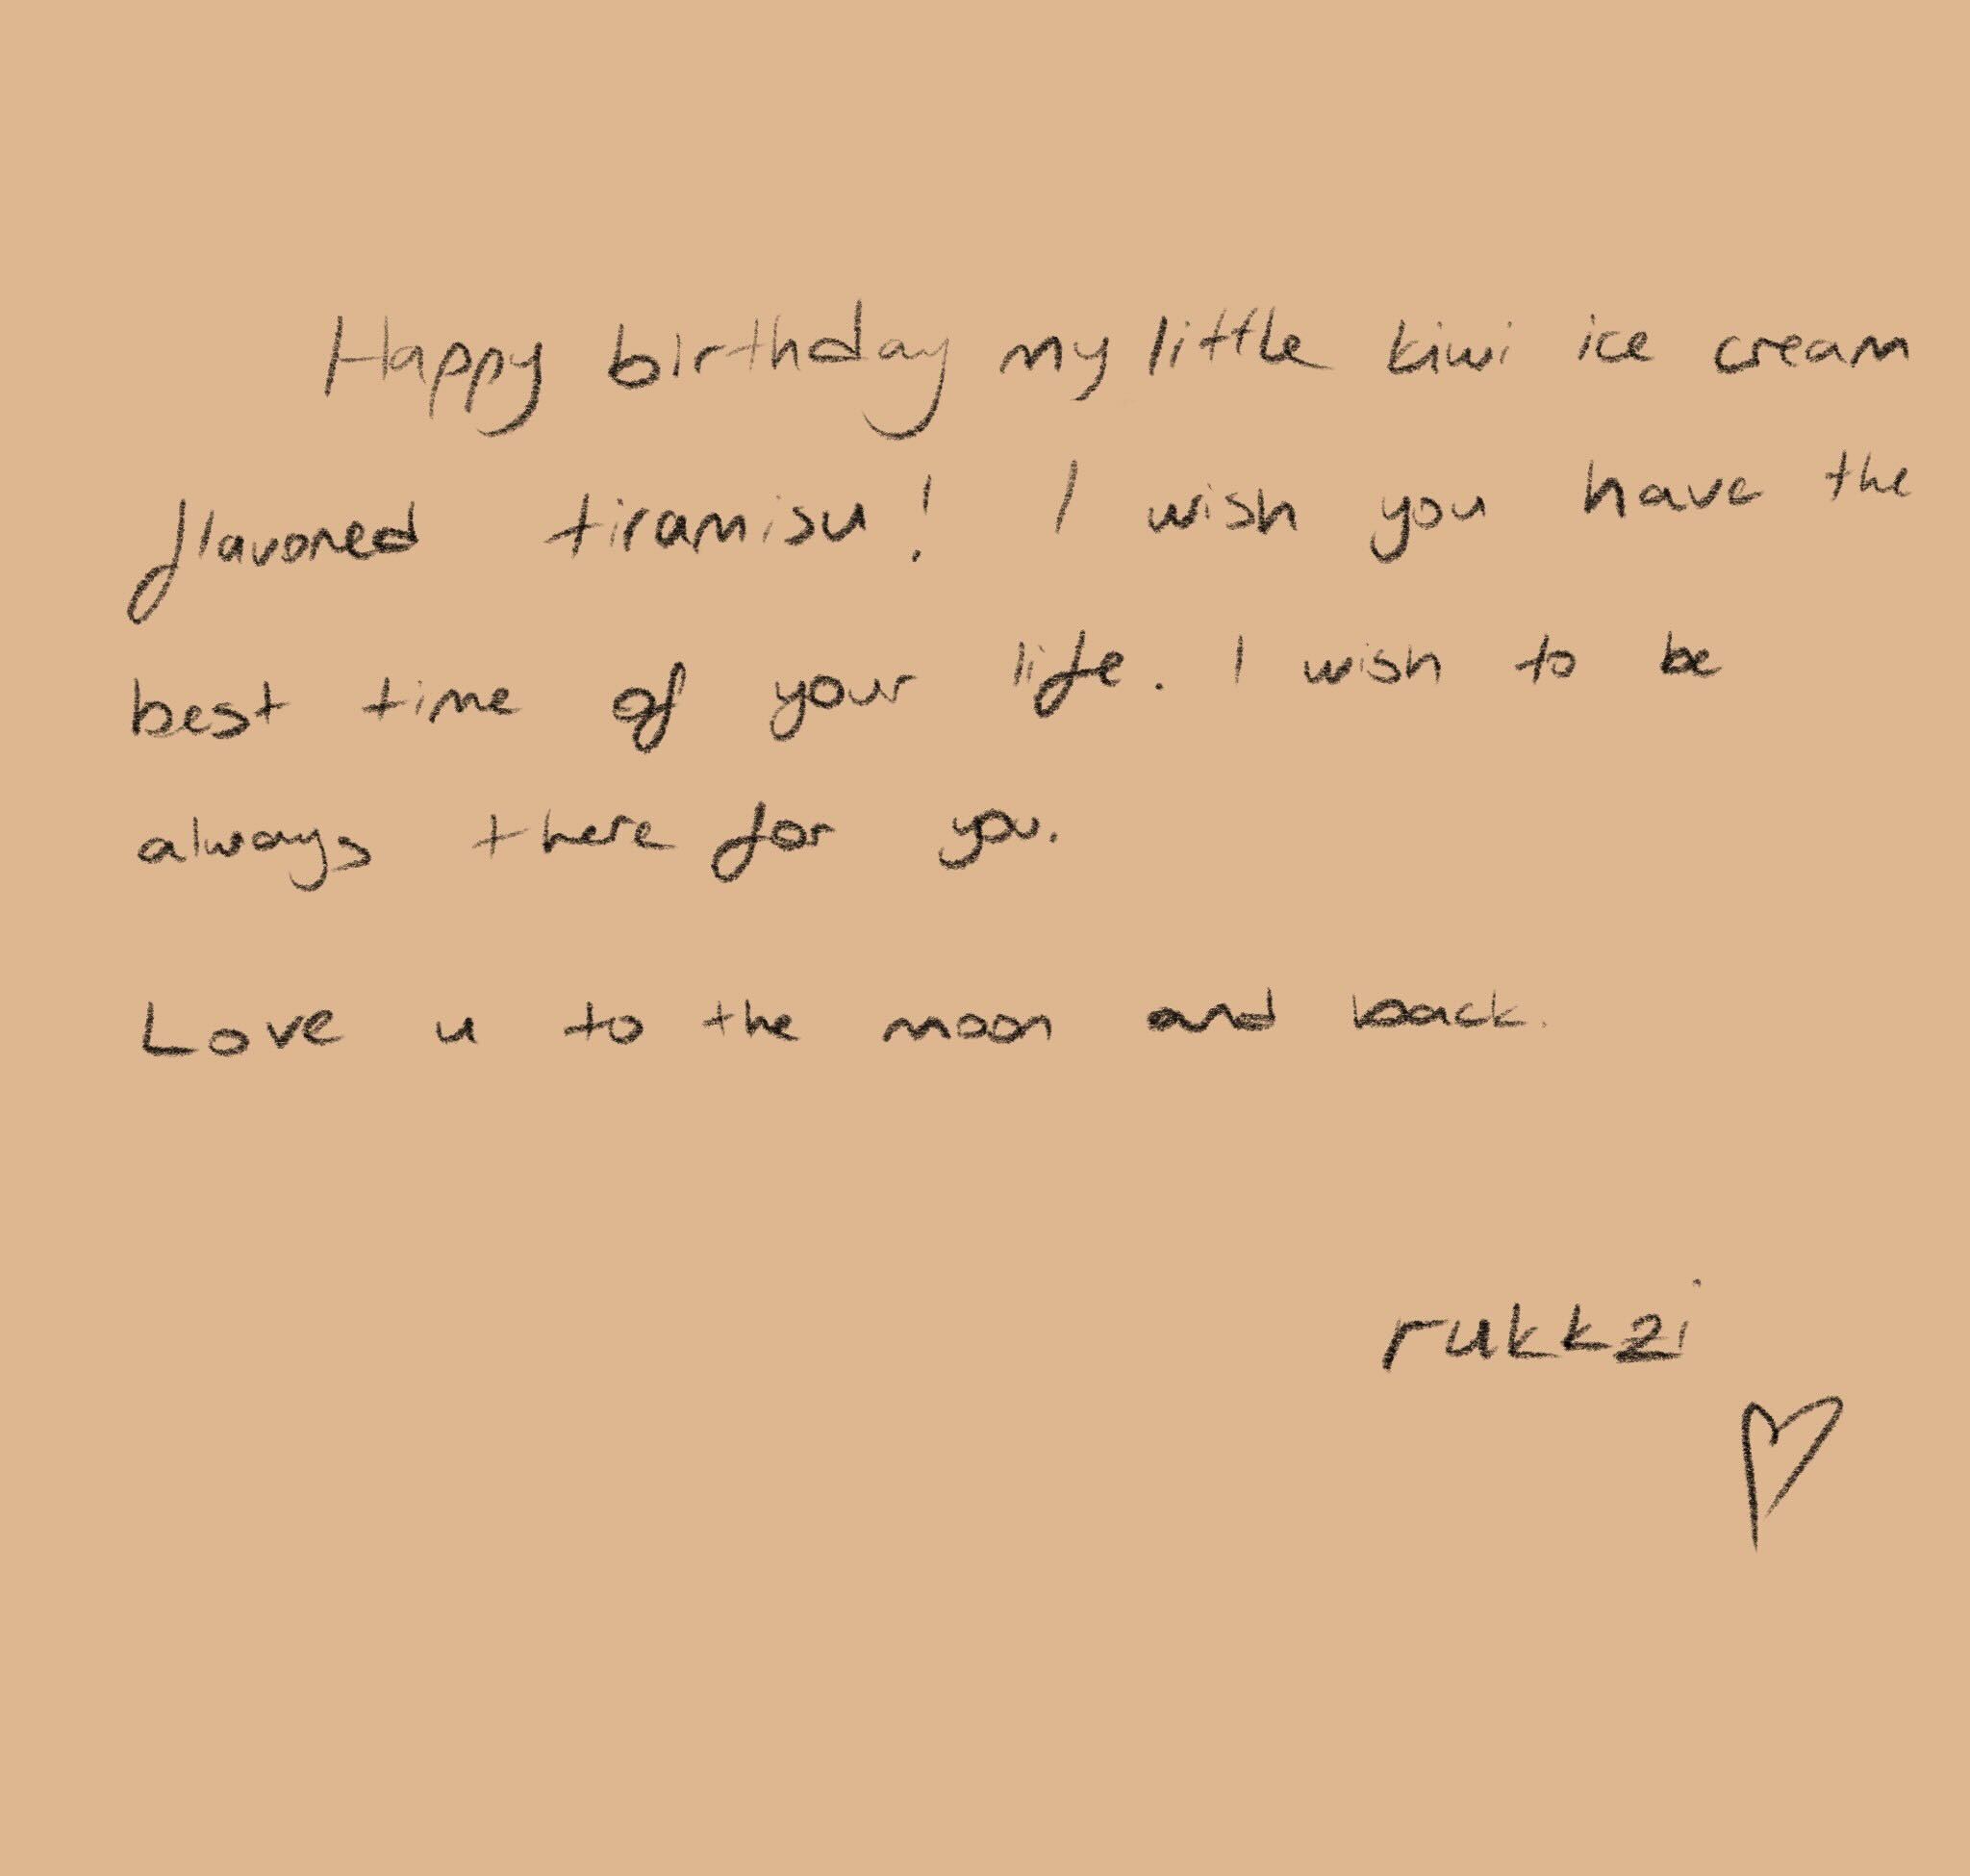 Happy birthday my little kiwi ice cream
flavored tiramisu! I wish you have the
best time of your life. I wish to be
always there for you.
Love u to the moon and back.
rukkzi